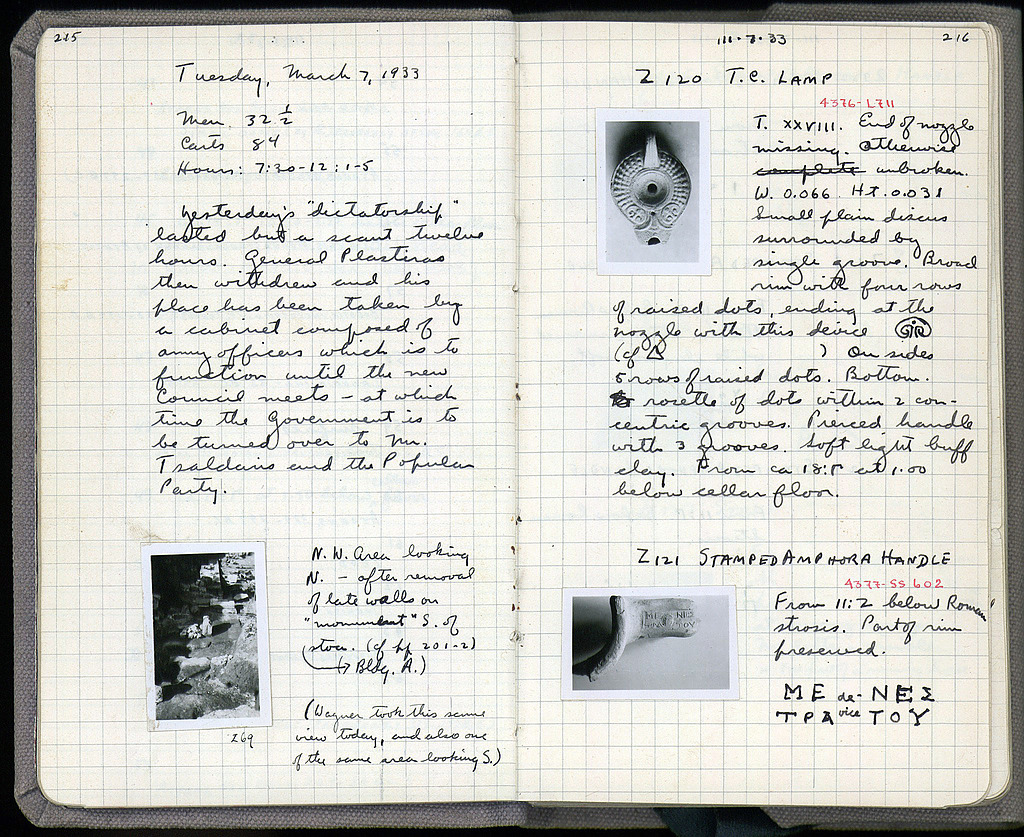 215
Tuesday, March 7, 1933
Men 32 1/2
Carts 84
Hours: 7:30-12 : 1-5
Yesterday's "dictatorship"
lasted but a scant twelve
hours. General Plastiras
then withdrew and his
place has been taken by
a cabinet composed of
army officers which is to
function until the new
Council meets – at which
time the Government is to
be turned over to Mr.
Tsaldaris and the Popular
Party.
N.W. Area looking
N. – after removal
of late walls on
"monument" S. of
stoa. (cf pp 201-2)
→ Bldg. A.)
269
(Wagner took this same
view today, and also one
of the same area looking S.)
III·7·33
216
Z 120 T.C. LAMP
4376-L711
T. XXVIII. End of nozzle
missing. Otherwise
complete unbroken.
W. 0.066 Ht. 0.031
Small plain discus
surrounded by
single groove. Broad
rim with four rows
of raised dots, ending at the
nozzle with this device
(cf Δ ) On sides
5 rows of raised dots. Bottom.
rosette of dots within 2 con-
centric grooves. Pierced handle
with 3 grooves. Soft light buff
clay. From ca 18:Γ at 1.00
below cellar floor.
Z 121 STAMPED AMPHORA HANDLE
4377-SS 602
From 11:Z below Roman
strosis. Part of rim
preserved.
ΜΕ de- ΝΕΣ
ΤΡΑ vice ΤΟΥ